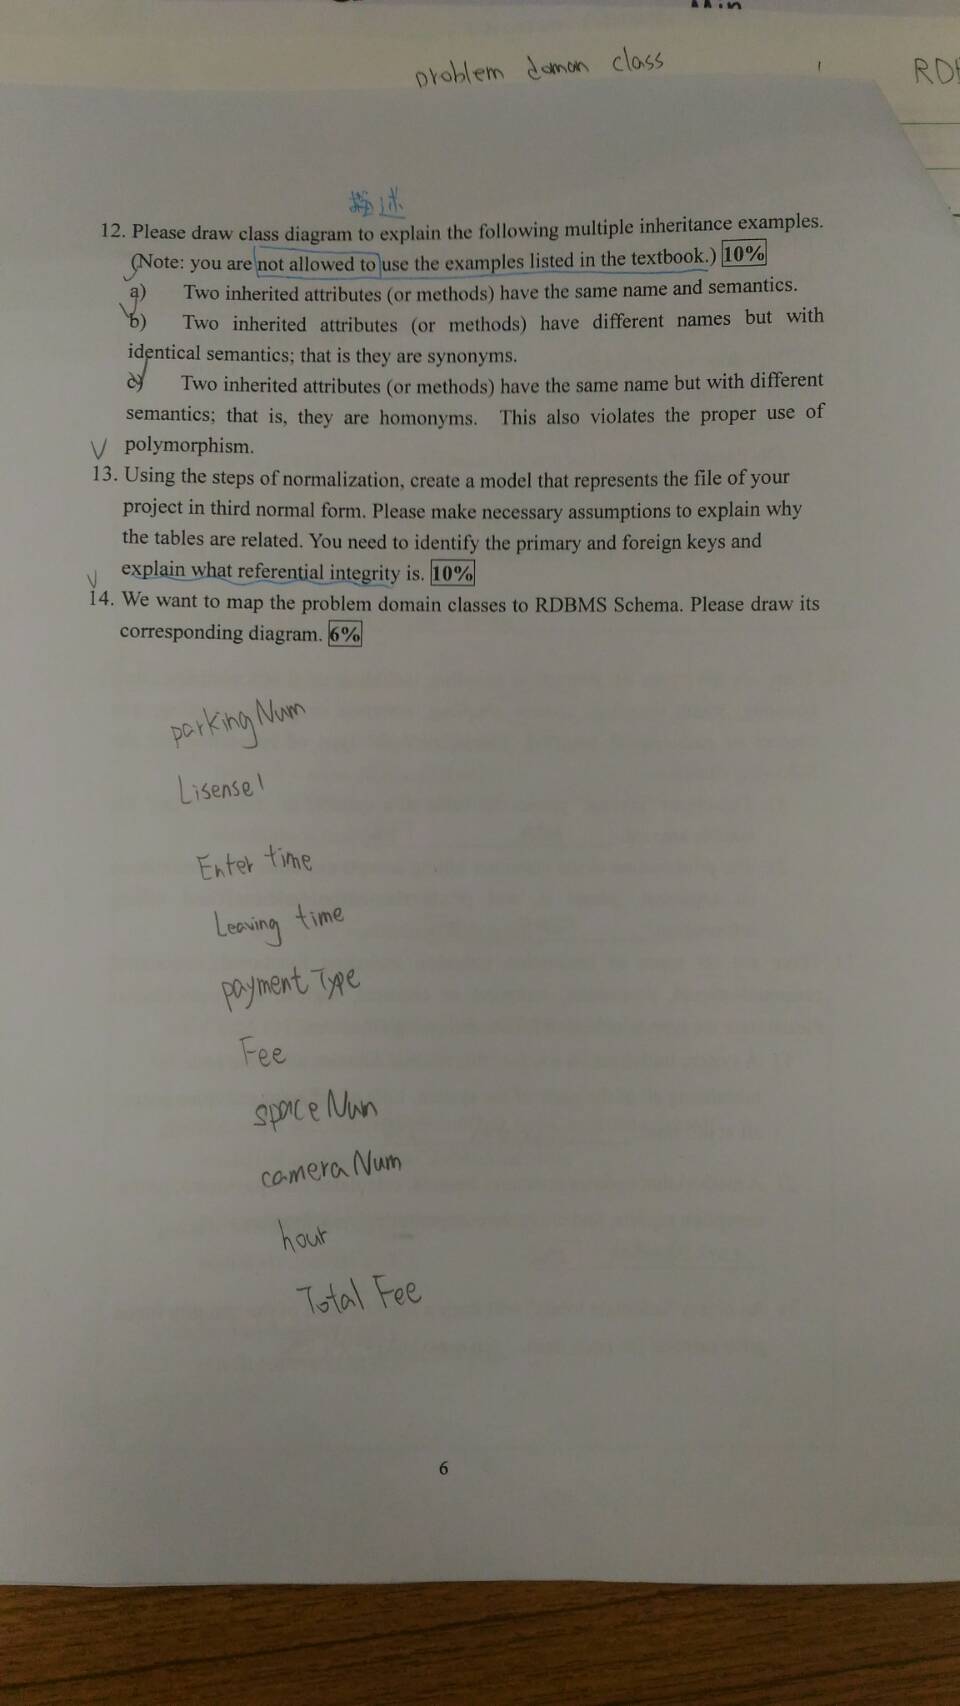 problem doman class
描述
12. Please draw class diagram to explain the following multiple inheritance examples.
(Note: you are not allowed to use the examples listed in the textbook.) 10%
a) Two inherited attributes (or methods) have the same name and semantics.
b) Two inherited attributes (or methods) have different names but with
identical semantics; that is they are synonyms.
c) Two inherited attributes (or methods) have the same name but with different
semantics; that is, they are homonyms. This also violates the proper use of
polymorphism.
13. Using the steps of normalization, create a model that represents the file of your
project in third normal form. Please make necessary assumptions to explain why
the tables are related. You need to identify the primary and foreign keys and
explain what referential integrity is. 10%
14. We want to map the problem domain classes to RDBMS Schema. Please draw its
corresponding diagram. 6%
parkingNum
Lisense1
Enter time
Leaving time
payment Type
Fee
space Num
camera Num
hour
Total Fee
6